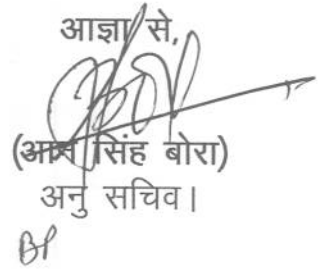 आज्ञा से,
(आन सिंह बोरा)
अनु सचिव।
BP